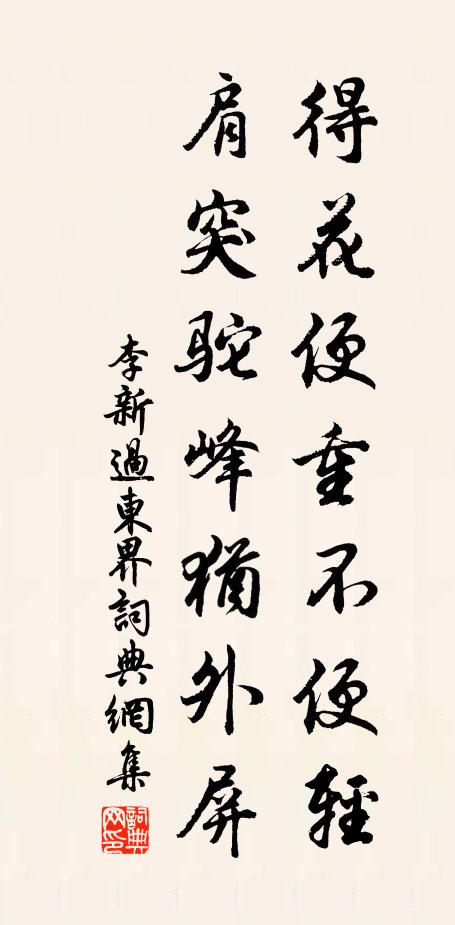 得花便重不便輕
肩突駝峰猶外屏
李新過東界詞典網集
詞典网印